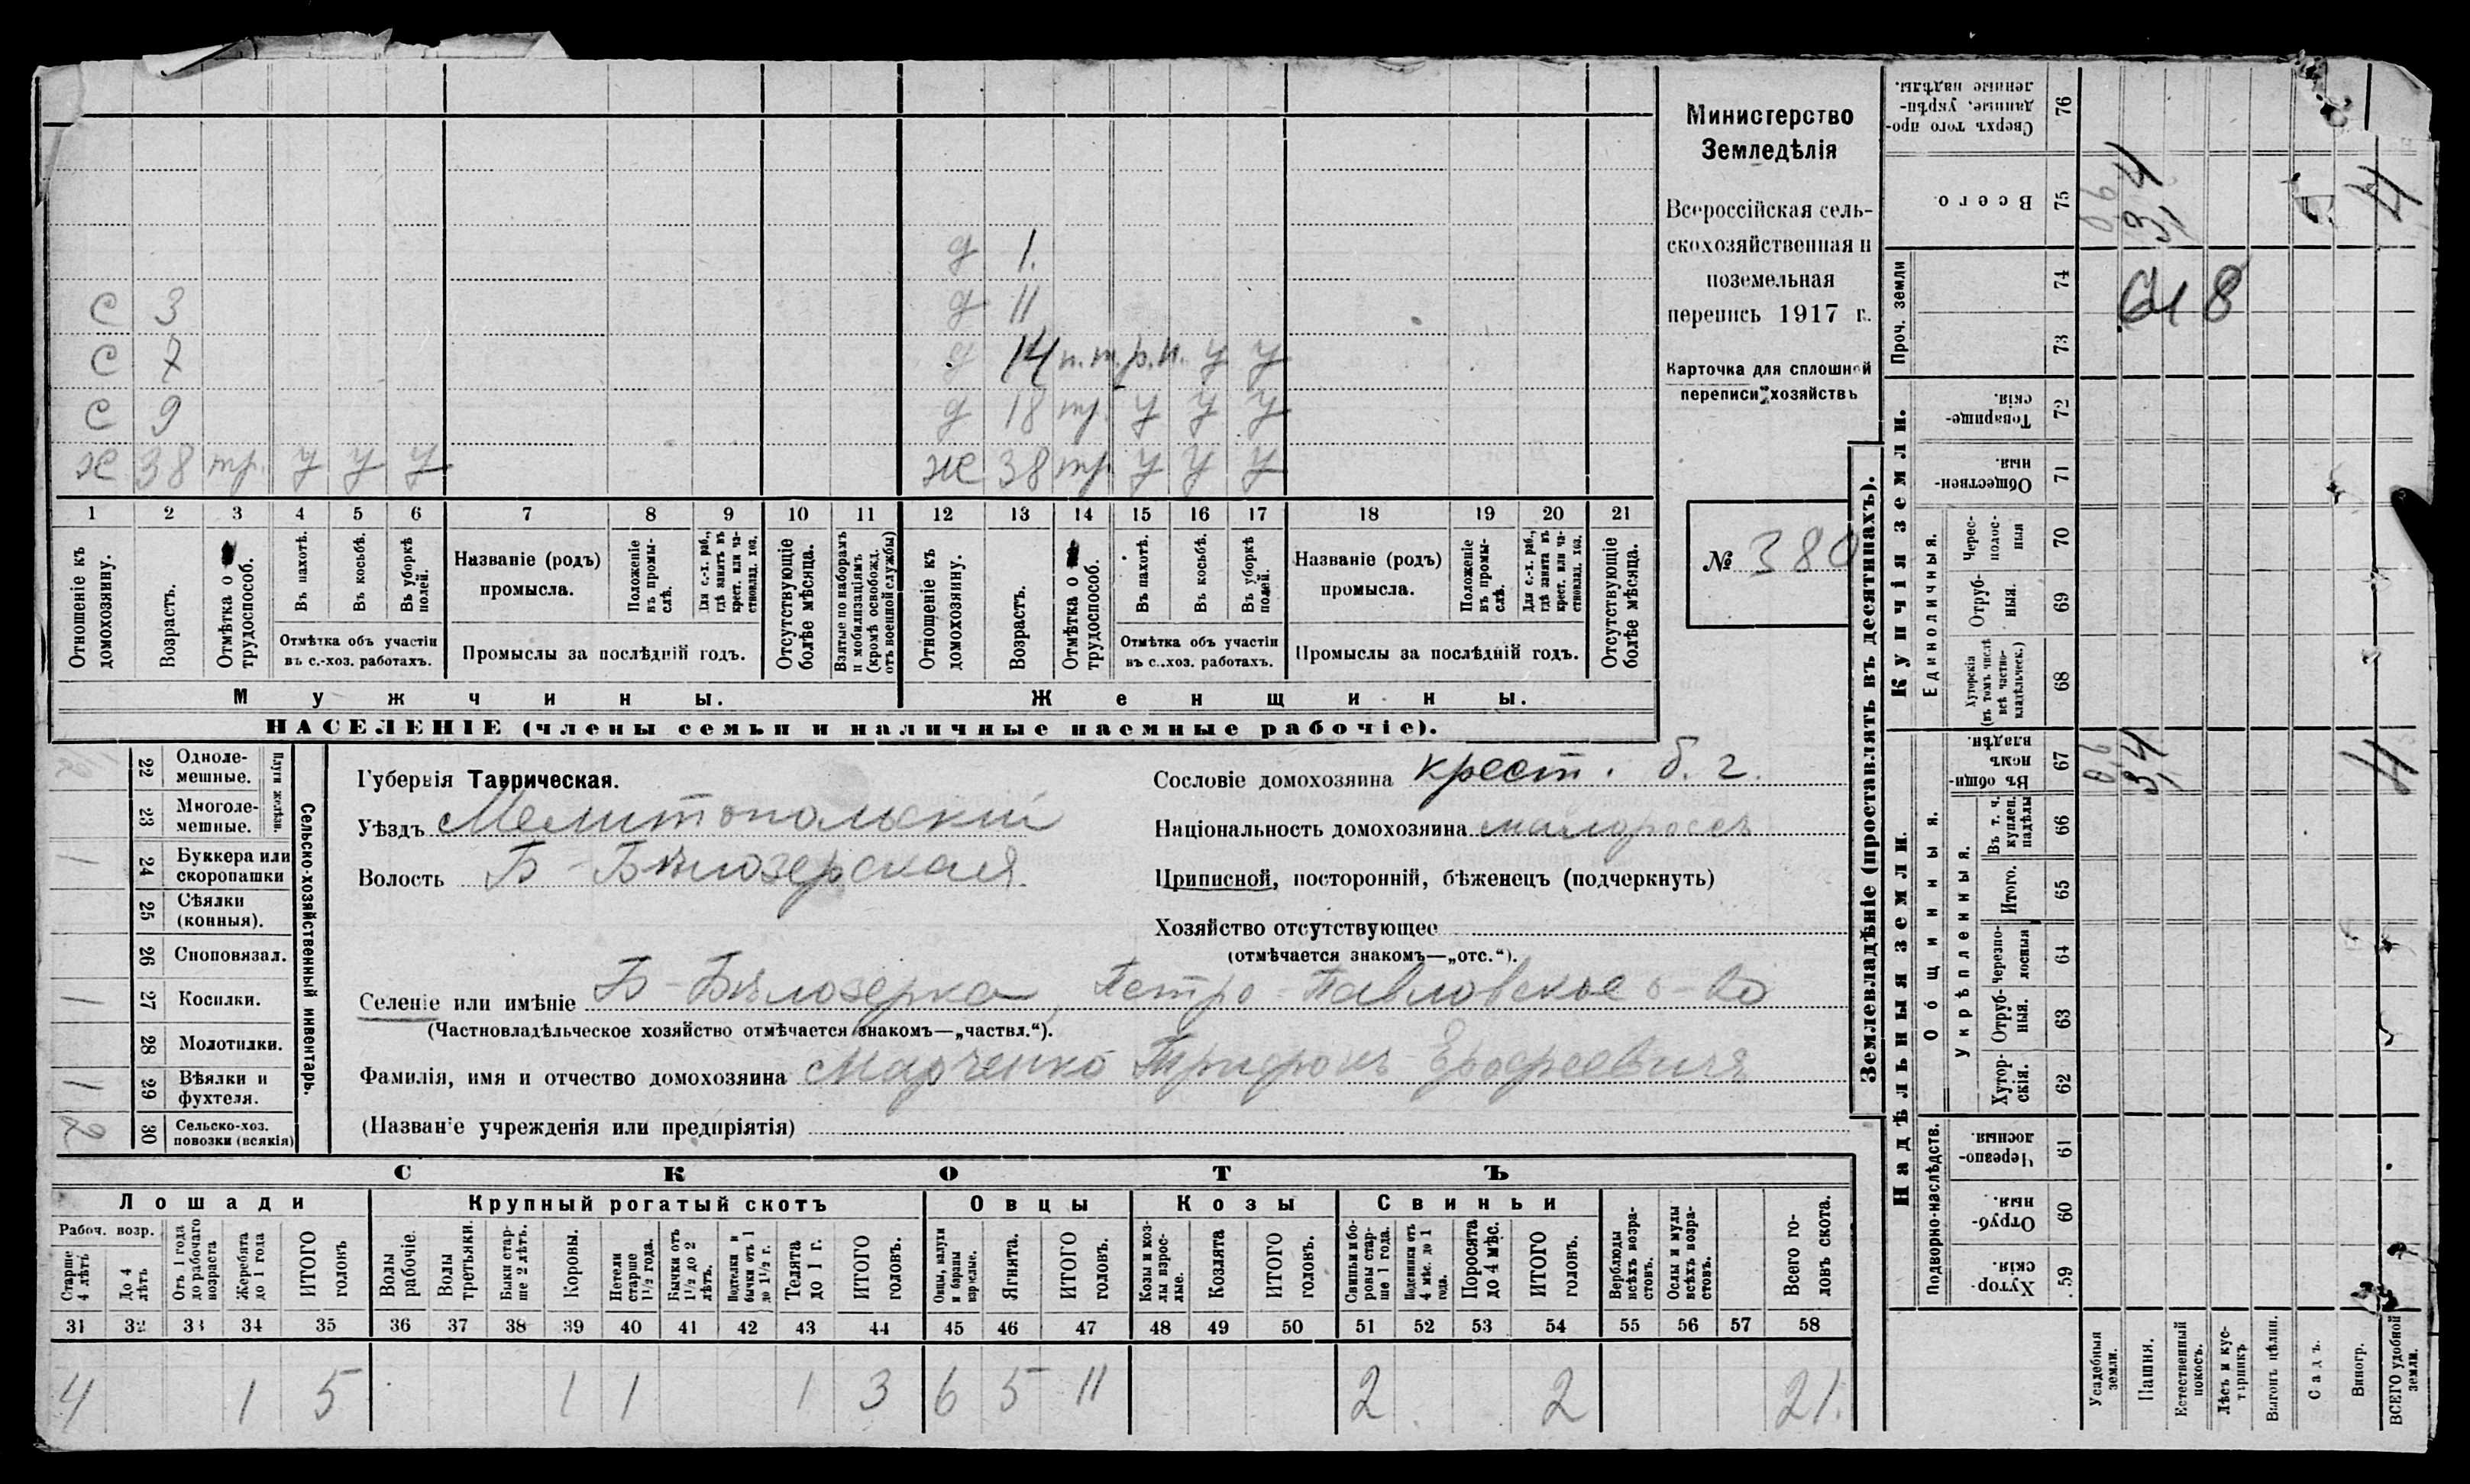 д 1.
С 3 д 11
С 7 д 14 п. т. р. п. у у
С 9 д 18 тр. у у у
х 38 тр. у у у ж 38 тр у у у
1 2 3 4 5 6 7 8 9 10 11 12 13 14 15 16 17 18 19 20 21
Отношеніе къ домохозяину.
Возрастъ.
Отмѣтка о трудоспособ.
Въ пахотѣ.
Въ косьбѣ.
Въ уборкѣ полей.
Отмѣтка объ участіи въ с.-хоз. работахъ.
Названіе (родъ) промысла.
Положеніе въ промы-слѣ.
Для с.-х. раб., гдѣ занятъ въ крест. или ча-стновлад. хоз.
Промыслы за послѣдній годъ.
Отсутствующіе болѣе мѣсяца.
Взятые по наборамъ и мобилизаціямъ (кромѣ освобожд. отъ военной службы)
Отношеніе къ домохозяину.
Возрастъ.
Отмѣтка о трудоспособ.
Въ пахотѣ.
Въ косьбѣ.
Въ уборкѣ полей.
Отмѣтка объ участіи въ с..хоз. работахъ.
Названіе (родъ) промысла.
Положеніе въ промы-слѣ.
Для с.-х. раб., гдѣ занята въ крест. или ча-стновлад. хоз.
Промыслы за послѣдній годъ.
Отсутствующіе болѣе мѣсяца.
Мужчины. Женщины.
НАСЕЛЕНІЕ (члены семьи и наличные наемные рабочіе).
Министерство
Земледѣлія
Всероссійская сель-
скохозяйственная и
поземельная
перепись 1917 г.
Карточка для сплошной
переписи хозяйствъ
№ 380
22 Одноле-мешные.
23 Многоле-мешные.
Плуги желѣзн.
24 Буккера или скоропашки 1
25 Сѣялки (конныя).
26 Сноповязал.
27 Косилки. 1
28 Молотилки.
29 Вѣялки и фухтеля. 1
30 Сельско-хоз. повозки (всякія) 2
Сельско-хозяйственный инвентарь.
Губернія Таврическая.
Уѣздъ Мелитопольскій
Волость Б-Бѣлозерская
Сословіе домохозяина крест. б. г.
Національность домохозяина малороссъ
Приписной, посторонній, бѣженецъ (подчеркнуть)
Хозяйство отсутствующее
(отмѣчается знакомъ—„отс.“).
Селеніе или имѣніе Б-Бѣлозерка, Петро-Павловское о-во
(Частновладѣльческое хозяйство отмѣчается знакомъ—„частвл.“).
Фамилія, имя и отчество домохозяина Марченко Трифонъ Ерофеевичъ
(Названіе учрежденія или предпріятія)
СКОТЪ
Лошади Крупный рогатый скотъ Овцы Козы Свиньи
Рабоч. возр.
Старше 4 лѣтъ
До 4 лѣтъ
Отъ 1 года до рабочаго возраста
Жеребята до 1 года
ИТОГО головъ
Волы рабочіе.
Волы третьяки.
Быки стар-ше 2 лѣтъ.
Коровы.
Нетели старше 1½ года.
Бычки отъ 1½ до 2 лѣтъ.
Подтелки и бычки отъ 1 до 1½ г.
Телята до 1 г.
ИТОГО головъ.
Овцы, валухи и бараны взрослые.
Ягнята.
ИТОГО головъ.
Козы и коз-лы взрос-лые.
Козлята
ИТОГО головъ.
Свиньи и бо-ровы стар-ше 1 года.
Подсвинки отъ 4 мѣс. до 1 года.
Поросята до 4 мѣс.
ИТОГО головъ.
Верблюды всѣхъ возра-стовъ.
Ослы и мулы всѣхъ возра-стовъ.
Всего го-ловъ скота.
31 32 33 34 35 36 37 38 39 40 41 42 43 44 45 46 47 48 49 50 51 52 53 54 55 56 57 58
4 1 5 1 1 1 3 6 5 11 2 2 21.
Землевладѣніе (проставлять въ десятинахъ).
Купчія земли.
Надѣльныя земли.
76 Сверхъ того про-данные, укрѣп-ленные надѣлы.
75 Всего
Проч. земли
74
73
618
72 Товарище-скія.
71 Обществен-ныя.
Единоличныя.
70 Черес-полос-ныя
69 Отруб-ныя.
68 Хуторскія (въ томъ числѣ всѣ частно-владѣльческ.)
Общинныя.
67 Въ общи-номъ владѣн.
Укрѣпленныя.
66 Въ т. ч. куплен. надѣлы
65 Итого.
64 Черезпо-лосныя
63 Отруб-ныя.
62 Хутор-скія.
Подворно-наслѣдств.
61 Черезпо-лосныя.
60 Отруб-ныя.
59 Хутор-скія.
Усадебныя земли.
Пашня.
Естественный покосъ.
Лѣсъ и кус-тарникъ
Выгонъ цѣлин.
Садъ.
Виногр.
ВСЕГО удобной земли.